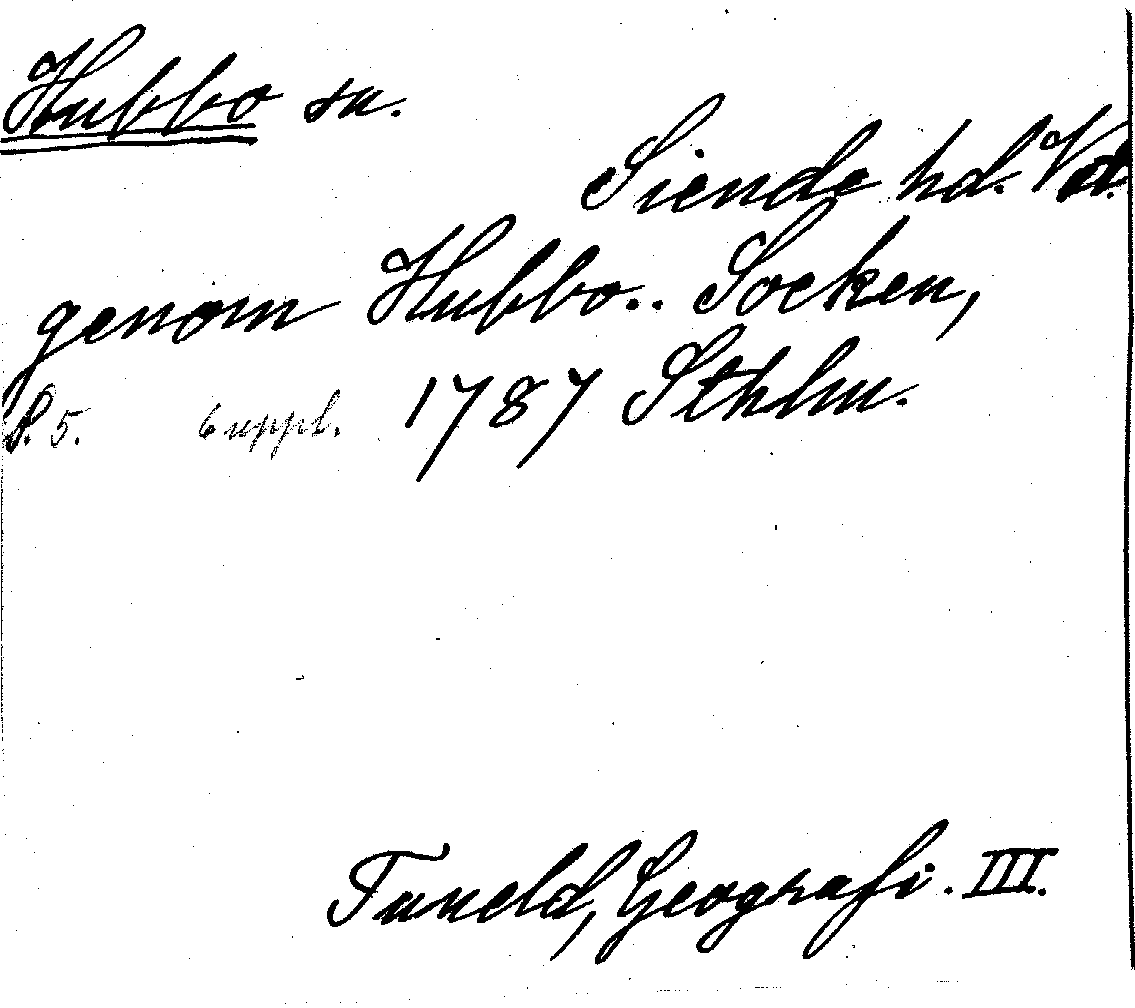 Hubbo sn.
Siende hd. Vstl.
genom Hubbo.. Socken,
S. 5. 6 uppl. 1787 Sthlm.
Tuneld, Geografi. III.